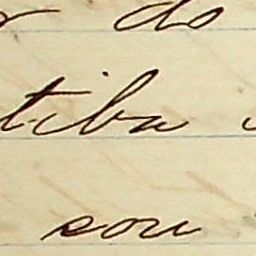 do
tiba
sou